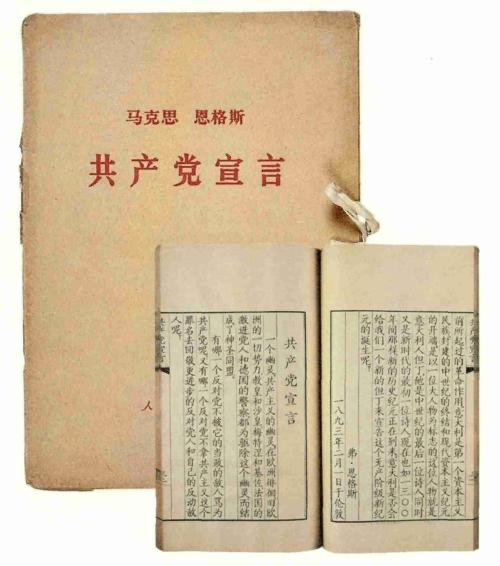 马克思 恩格斯
共产党宣言
人
前所起过的革命作用意大利是第一个资本主义
民族封建的中世纪的终结和现代资本主义纪元
的开端是以一位大人物为标志的这位人物就是
意大利人但丁他是中世纪的最后一位诗人同时
又是新时代的最初一位诗人现在也如一三〇〇
年间那样新的历史纪元正在到来意大利是否会
给我们一个新的但丁来宣告这个无产阶级新纪
元的诞生呢。
弗·恩格斯
一八九三年二月一日于伦敦
共产党宣言
一个幽灵共产主义的幽灵在欧洲徘徊旧欧
洲的一切势力教皇和沙皇梅特涅和基佐法国的
激进党人和德国的警察都为驱除这个幽灵而结
成了神圣同盟。
有哪一个反对党不被它的当政的敌人骂为
共产党呢又有哪一个反对党不拿共产主义这个
罪名去回敬更进步的反对党人和自己的反动敌
人呢。